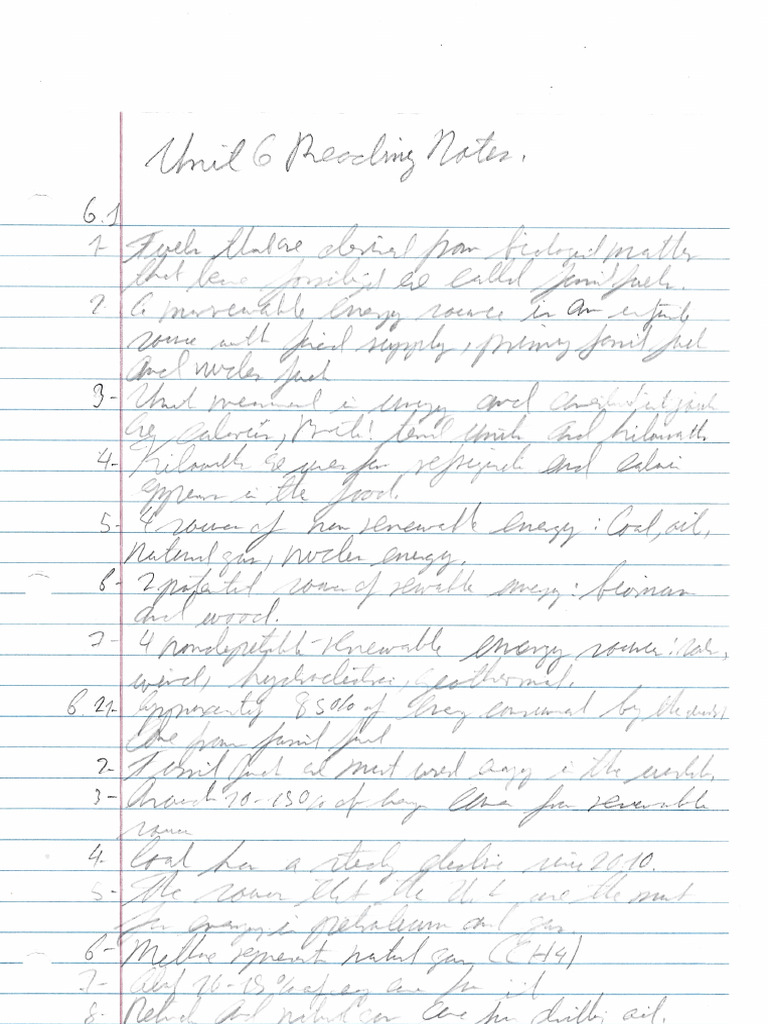 Unit 6 Reading Notes.
6.1
1- Fuels that are derived from biological matter
that have fossilized are called fossil fuels.
2. A nonrenewable energy source is an
source with fixed supply, primary fossil fuel
and nuclear fuel
3- Unit measured in energy and
are calories, thermal units and kilowatts
4- Kilowatts are uses for refrigerate and calorie
appears in the food.
5- 4 sources of non renewable energy: Coal, oil,
natural gas, nuclear energy.
6- 2 potential source of renewable energy: biomass
and wood.
7- 4 nondepletable-renewable energy source: solar,
wind, hydroelectric, geothermal.
6.2 1- 85% of energy consumed by the
come from fossil fuel
2- Fossil fuel are most used energy in the
3- Around 10-15% of energy comes from renewable
source
4. Coal has a steady decline since 2010.
5- The source that the U.S use the most
for energy is petroleum and gas.
6- Methane represents natural gas (CH4)
7- of energy come from
8- and natural gas come from oil.